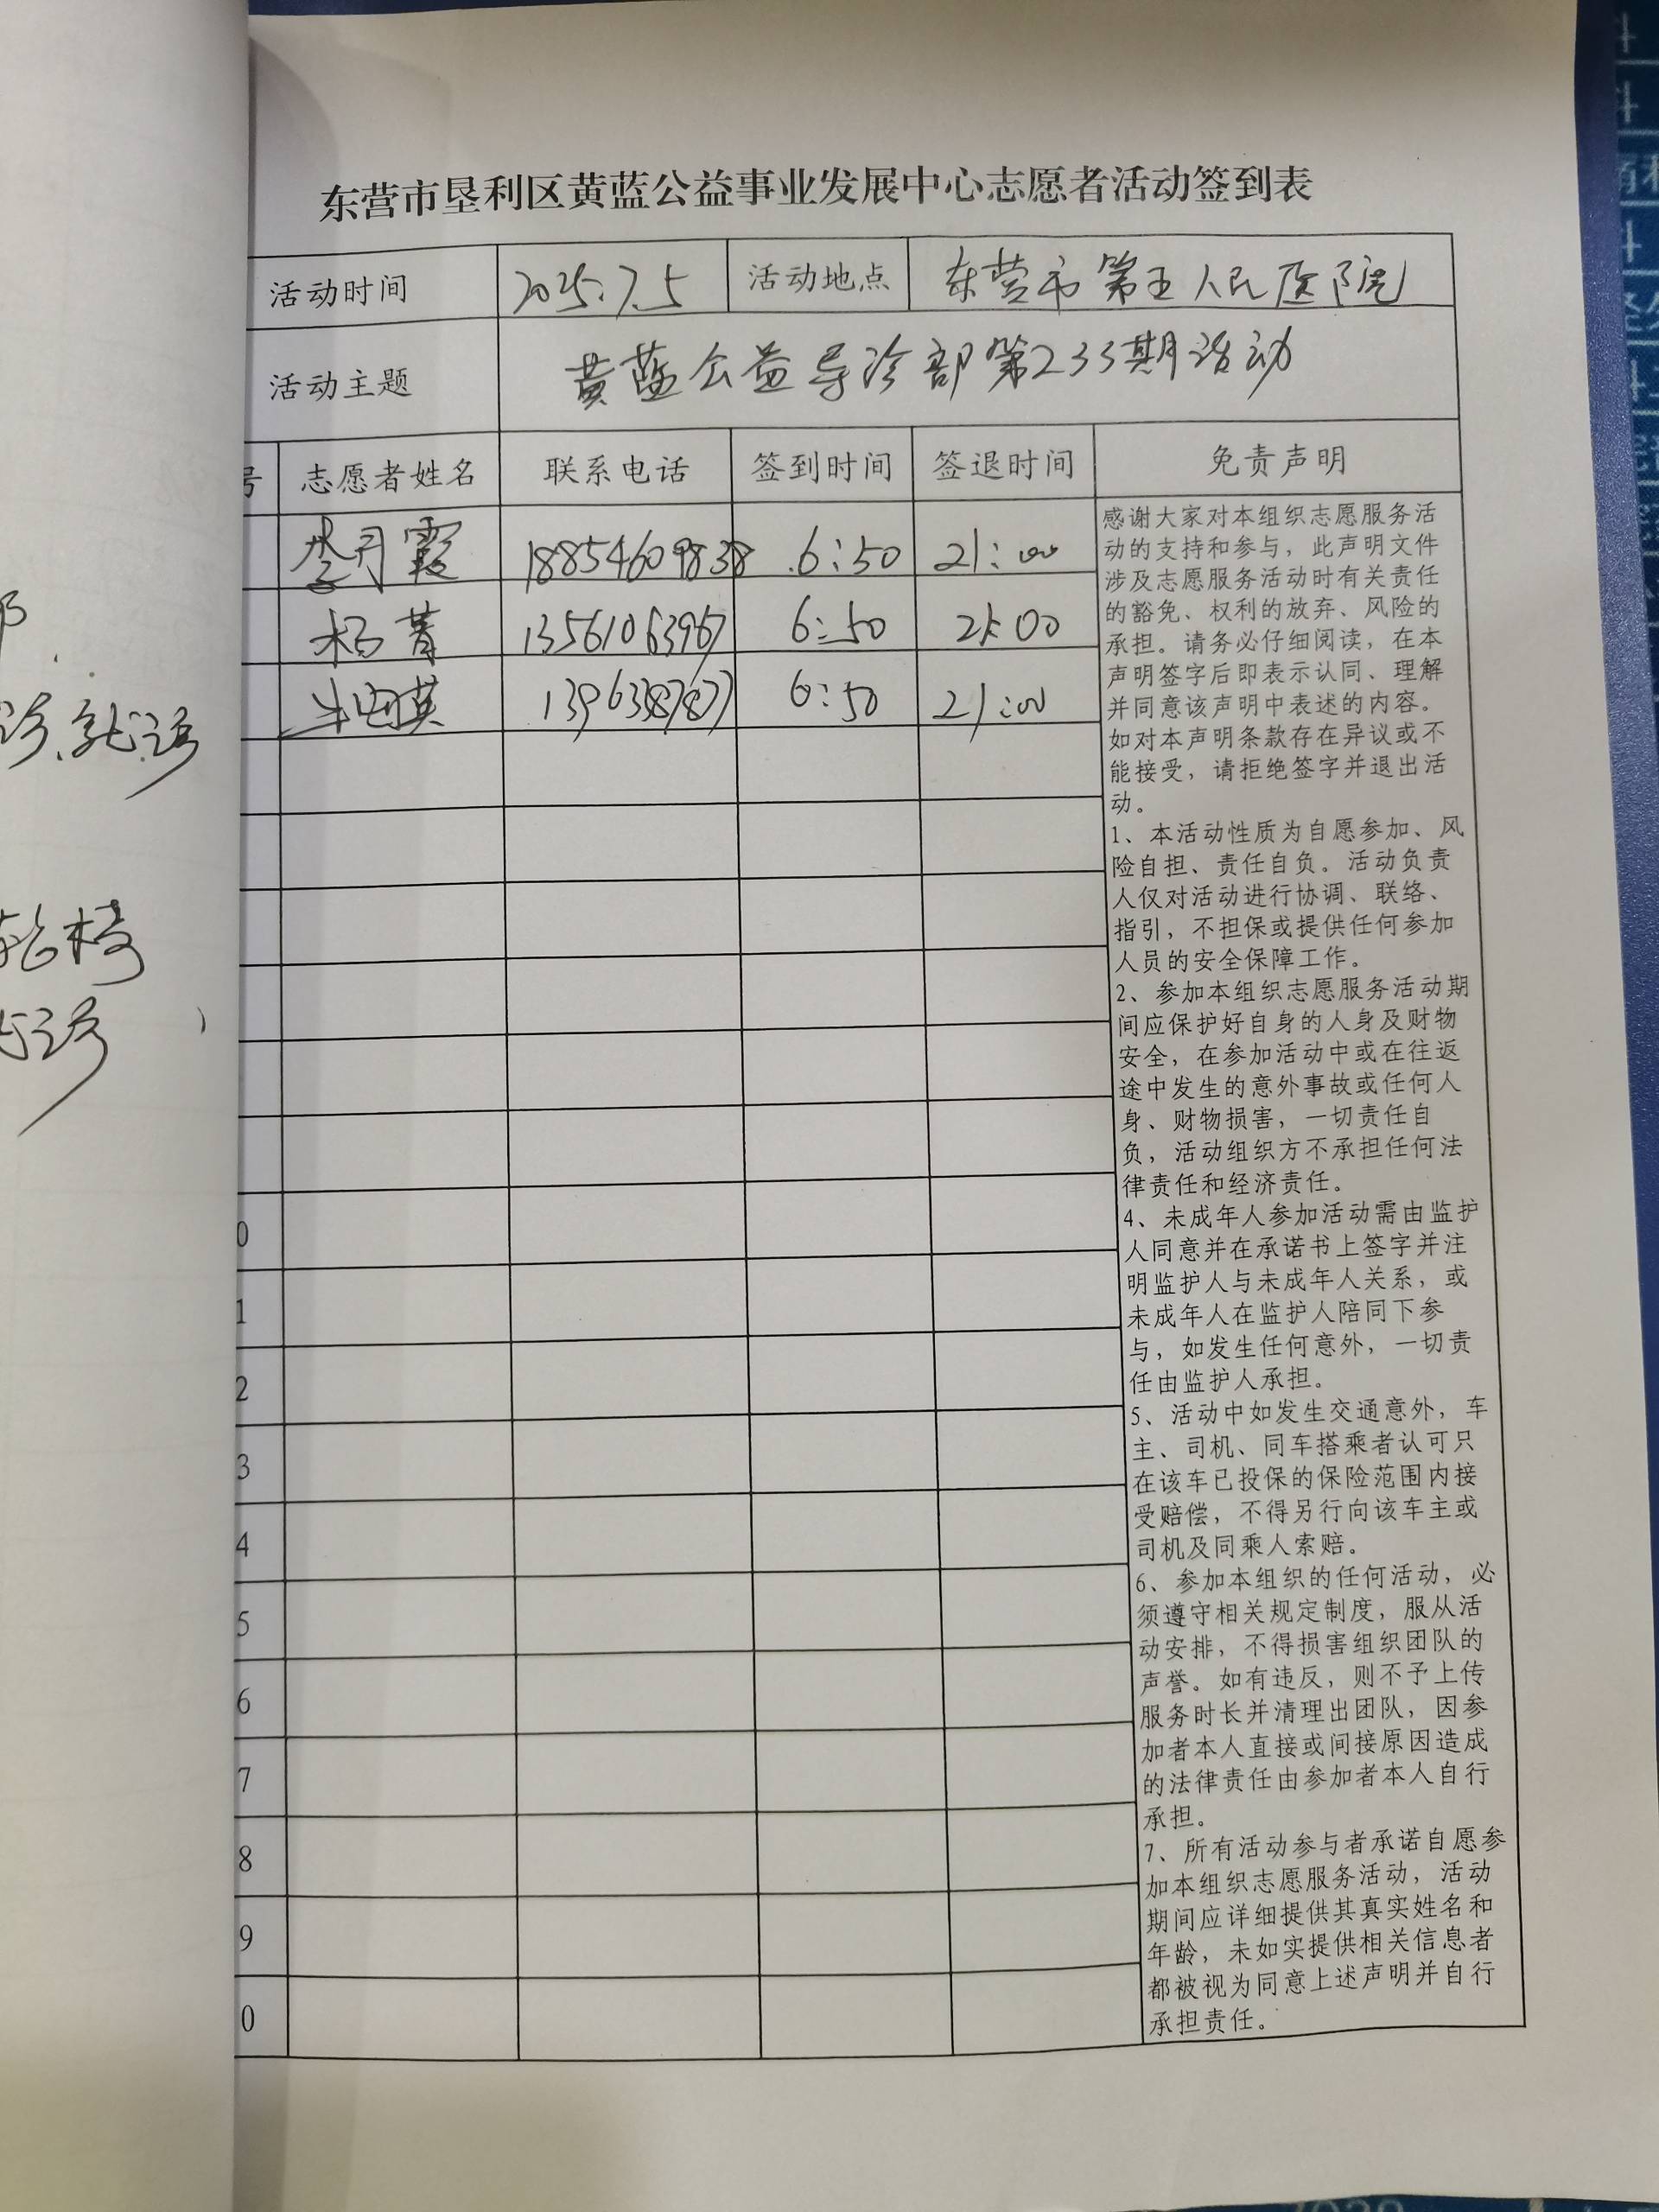 东营市垦利区黄蓝公益事业发展中心志愿者活动签到表
活动时间 2025.7.5 活动地点 东营市第五人民医院
活动主题 黄蓝公益导诊部第233期活动
号 志愿者姓名 联系电话 签到时间 签退时间 免责声明
李月霞 18854609838 6:50 21:00
杨菁 13561063967 6:50 21:00
6:50 21:00
感谢大家对本组织志愿服务活
动的支持和参与，此声明文件
涉及志愿服务活动时有关责任
的豁免、权利的放弃、风险的
承担。请务必仔细阅读，在本
声明签字后即表示认同、理解
并同意该声明中表述的内容。
如对本声明条款存在异议或不
能接受，请拒绝签字并退出活
动。
1、本活动性质为自愿参加、风
险自担、责任自负。活动负责
人仅对活动进行协调、联络、
指引，不担保或提供任何参加
人员的安全保障工作。
2、参加本组织志愿服务活动期
间应保护好自身的人身及财物
安全，在参加活动中或在往返
途中发生的意外事故或任何人
身、财物损害，一切责任自
负，活动组织方不承担任何法
律责任和经济责任。
4、未成年人参加活动需由监护
人同意并在承诺书上签字并注
明监护人与未成年人关系，或
未成年人在监护人陪同下参
与，如发生任何意外，一切责
任由监护人承担。
5、活动中如发生交通意外，车
主、司机、同车搭乘者认可只
在该车已投保的保险范围内接
受赔偿，不得另行向该车主或
司机及同乘人索赔。
6、参加本组织的任何活动，必
须遵守相关规定制度，服从活
动安排，不得损害组织团队的
声誉。如有违反，则不予上传
服务时长并清理出团队，因参
加者本人直接或间接原因造成
的法律责任由参加者本人自行
承担。
7、所有活动参与者承诺自愿参
加本组织志愿服务活动，活动
期间应详细提供其真实姓名和
年龄，未如实提供相关信息者
都被视为同意上述声明并自行
承担责任。
0
1
2
3
4
5
6
7
8
9
0
诊、就诊
轮椅
就诊